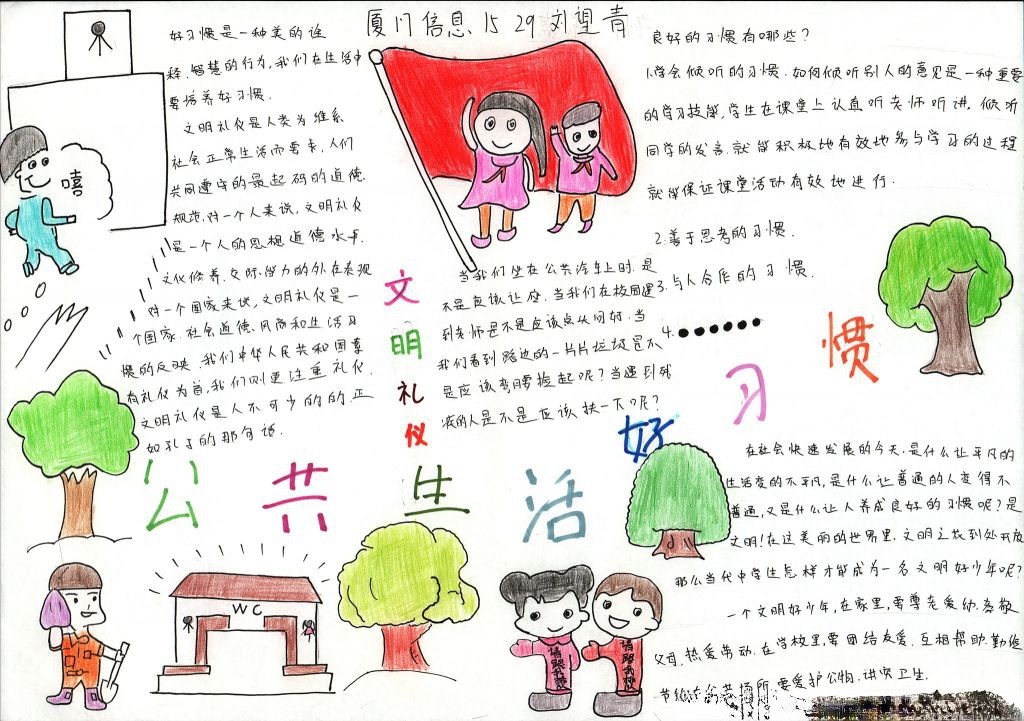 厦门信息 15 29 刘望青
好习惯是一种美的诠
释.智慧的行为,我们在生活中
要培养好习惯.
文明礼仪是人类为维系
社会正常生活而要求,人们
共同遵守的最起码的道德
规范.对一个人来说,文明礼仪
是一个人的思想道德水平.
文化修养.交际能力的外在表现
对一个国家来说,文明礼仪是一
个国家.社会道德.风尚和生活习
惯的反映.我们中华人民共和国尊
有礼仪为首,我们则更注重礼仪.
文明礼仪是人不可少的的.正
如孔子的那句话.
嘻
文明礼仪
当我们坐在公共汽车上时.是
不是应该让座.当我们在校园遇
到老师是不是应该点头问好.当
我们看到路边的一片片垃圾是不
是应该弯腰捡起呢?当遇到残
疾的人是不是应该扶一下呢?
良好的习惯有哪些?
1.学会倾听的习惯.如何倾听别人的意见是一种重要
的学习技能,学生在课堂上认真听老师听讲.倾听
同学的发言.就能积极地有效地参与学习的过程
就能保证课堂活动有效地进行.
2.善于思考的习惯.
3.与人合作的习惯.
4.●●●●●●
公共生活好习惯
在社会快速发展的今天.是什么让平凡的
生活变的不平凡,是什么让普通的人变得不
普通,又是什么让人养成良好的习惯呢?是
文明!在这美丽的世界里.文明之花到处开放
那么当代中学生怎样才能成为一名文明好少年呢?
一个文明好少年,在家里,要尊老爱幼.孝敬
父母.热爱劳动.在学校里要团结友爱.互相帮助.勤俭
节约.在公共场所.要爱护公物.讲究卫生.
WC
请跟我做
请跟我做